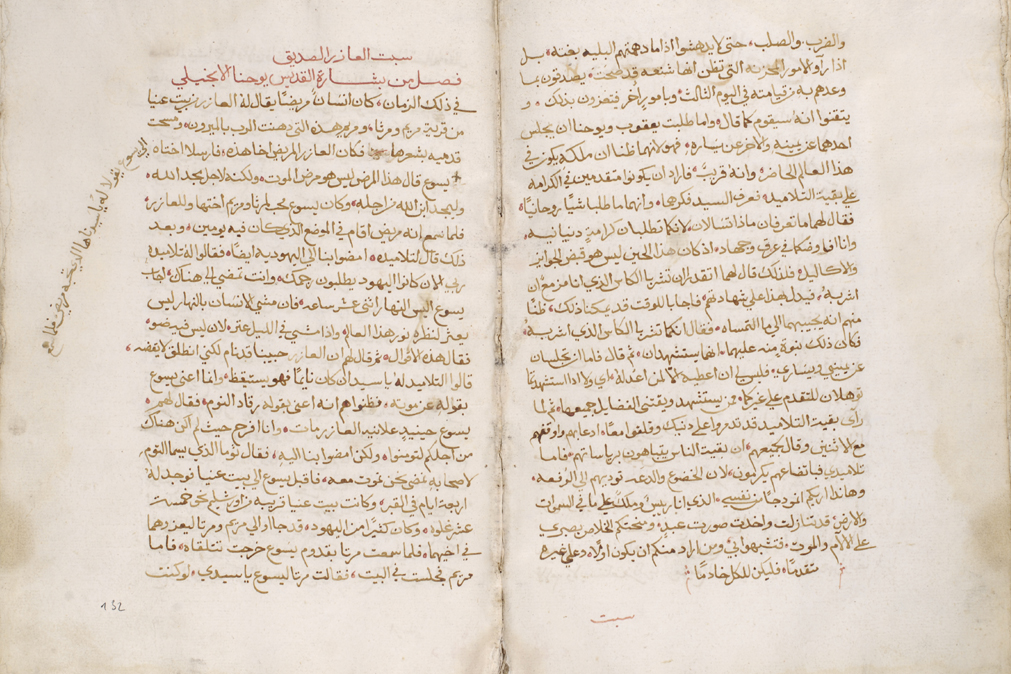 والضرب والصلب، حتى لا يدهشوا اذا ما دهمتهم البليه بغتة، بل
اذا رآو الامور المحزنه التي تظن انها شنعه قد صحت، يصدقون بما
وعدهم به من قيامته في اليوم الثالث، وبامور اخر فتعزون بذلك، و
يتقنوا انه سيقوم كما قال، واما طلبت يعقوب ويوحنا ان يجلس
احدهما عن يمينه والاخر عن يساره، فهو لانهما ظنا ان ملكه يكون في
هذا العالم الحاضر، وانه قريب، فارادا ان يكونوا متقدمين في الكرامه
على بقية التلاميد، فعرف السيد فكرهما، وانهما ما طلبا شيا روحانيا،
فقال لهما ما تعرفان ماذا تسالان، لانكما تطلبان كرامة دنيانيه،
وانا افاوضكما في عرق وجهاد، اذ كان هذا الحين ليس هو قبض الجوايز
والاكاليل، فلذلك قال لهما اتقدران تشربا الكاس الذي انا مزمع ان
اشربه، فيدل بهذا على شهادتهم، فاجابا للوقت قد يمكنا ذلك، ظنا
منهم انه يجيبهما الى ما التمساه، فقال انكما تشربا الكاس الذي اشربه،
فكان ذلك نبوة منه عليهما، انهما ستشهدان، ثم قال فاما ان تجلسان
عن يميني ويساري، فليس لي ان اعطيه الا لمن اعد له، اي ولا اذا استشهدتما
توهلان للتقدم على غيركما، من يستشهد ويقتني الفضايل جميعها، ثم لما
راى بقية التلاميد قد تدمروا على دنيك وقلقوا معا، ادعاهم واوقفهم
مع الاثنين وقال لجميعهم، ان بقية الناس يتباهون برياساتهم، فاما
تلاميدي فباتضاعهم يكرمون، لان الخضوع والدعه تودبهم الى الرفعه،
وهاندا اريكم انمودجا من نفسي، الذي انا ريس وملك على ما في السموات
والارض قد تنازلت واخدت صورت عبد، ومنحتكم الخلاص بصبري
على الالام والموت، فتشبهوا بي، ومن اراد منكم ان يكون اولا، وعلى غيره
متقدما، فليكن للكل خادما،
سبت
سبت العازر الصديق
فصل من بشارة القديس يوحنا الانجيلي
في ذلك الزمان، كان انسان مريضا يقال له العازر من بيت عنيا
من قرية مريم ومرتا، ومريم هذه التي دهنت الرب بالميرون، ومسحت
قدميه بشعرها، فكان العازر المريض اخا هذه، فارسلا اختاه
يسوع قال هذا المرض ليس هو مرض الموت، ولكنه لاجل مجد الله،
وليمجد ابن الله من اجله، وكان يسوع يحب لمرتا ومريم اختها وللعازر،
فلما سمع انه مريض اقام في الموضع الذي كان فيه يومين، وبعد
ذلك قال لتلاميده، امضوا بنا الى اليهودية ايضا، فقالوا له تلاميده
ربي الان كانوا اليهود يطلبون رجمك، وانت تمضي الى هناك، اجاب
يسوع اليس النهار اثنى عشر ساعه، فان مشى الانسان بالنهار ليس
يعثر لنظره نور هذا العالم، واذا مشى في الليل عثر، لان ليس فيه ضو،
فقال هذه الاقوال، ثم قال لهم ان العازر حبيبنا قد نام لكني انطلق لايقضه،
قالوا التلاميد له يا سيد ان كان نايما فهو يستيقظ، وانما اعنى يسوع
بقوله عن موته، فظنوا هم انه اعنى بقوله رقاد النوم، فقال لهم
يسوع حينيد علانيه العازر مات، وانا افرح حيث لم اكن هناك
من اجلكم لتومنوا، ولكن امضوا بنا اليه، فقال توما الذي يسما التوم
لاصحابه نمضي نحن نموت معه، فاقبل يسوع الى بيت عنيا فوجد له
اربعة ايام في القبر، وكانت بيت عنيا قريبه من اورشليم نحو خمسة
عشر غلوه، وكان كثيرا من اليهود، قد جاا الى مريم ومرتا ليعزوهما
في اخيهما، فلما سمعت مرتا بقدوم يسوع خرجت تتلقاه، فاما
مريم فجلست في البيت، فقالت مرتا ليسوع يا سيدي، لو كنت
الى يسوع يقولا له يا سيد هاالذي تحبه مريض فلما سمع
132